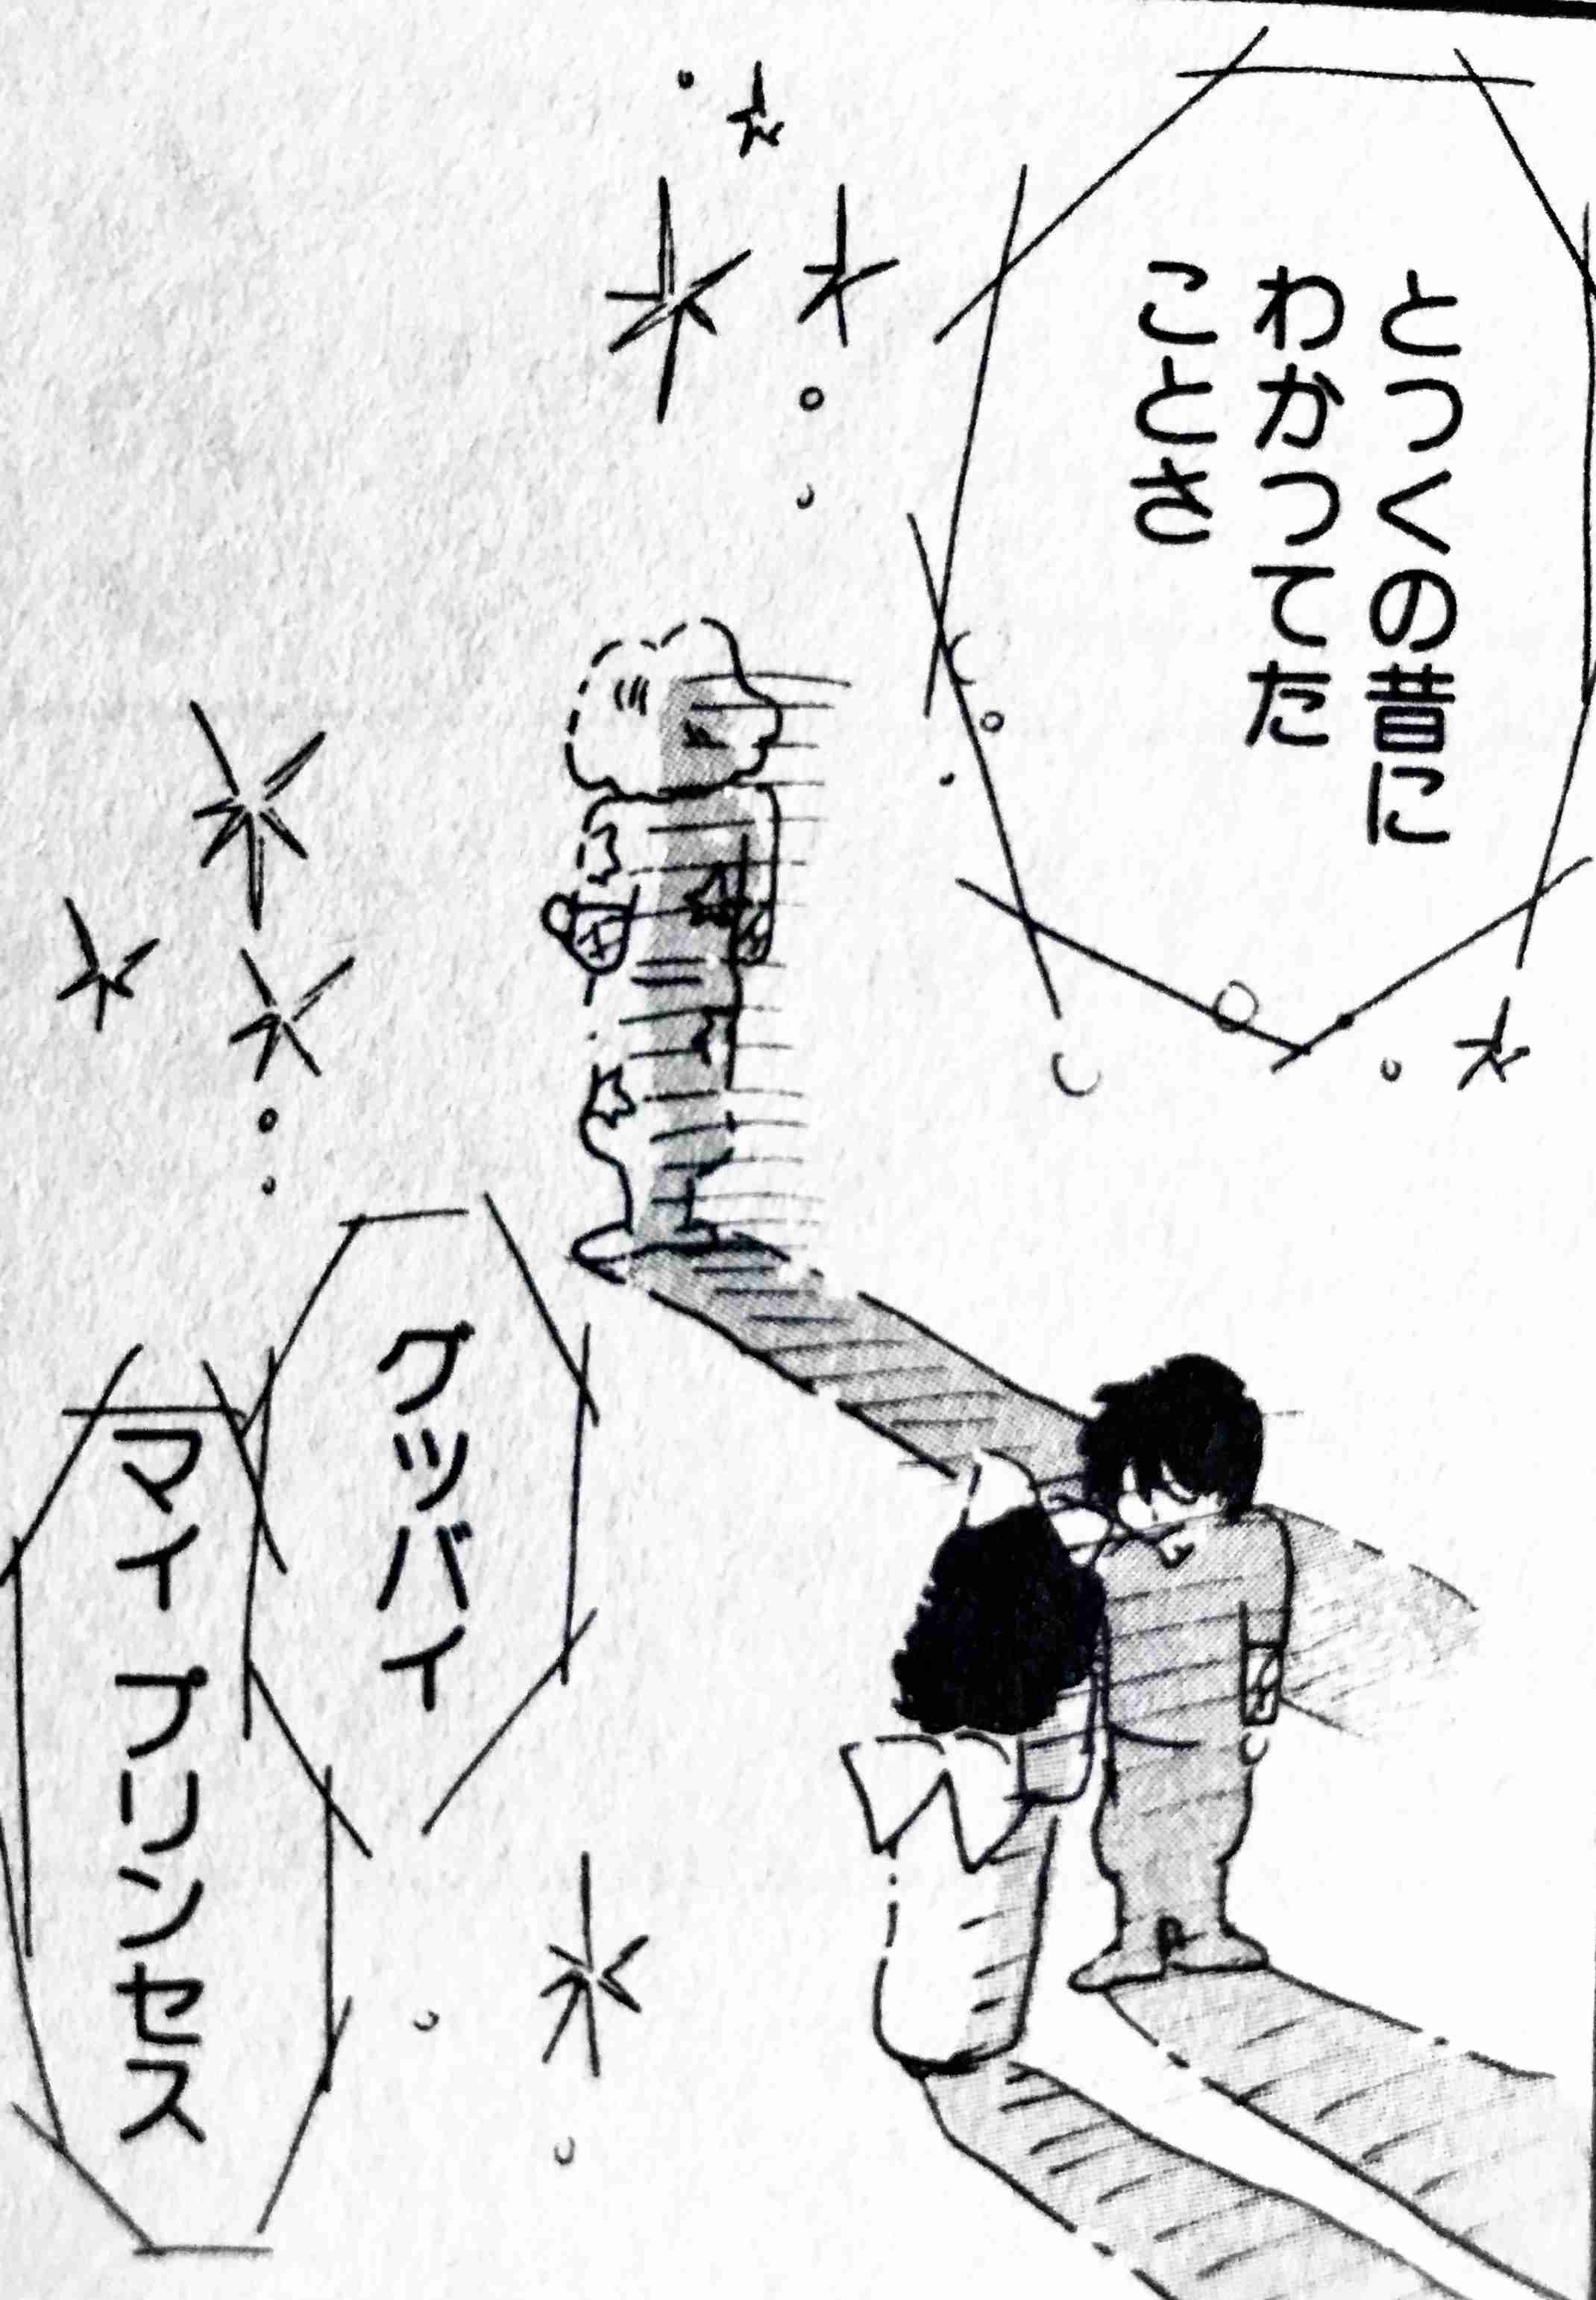 とっくの昔に
わかってた
ことさ
グッバイ
マイ プリンセス